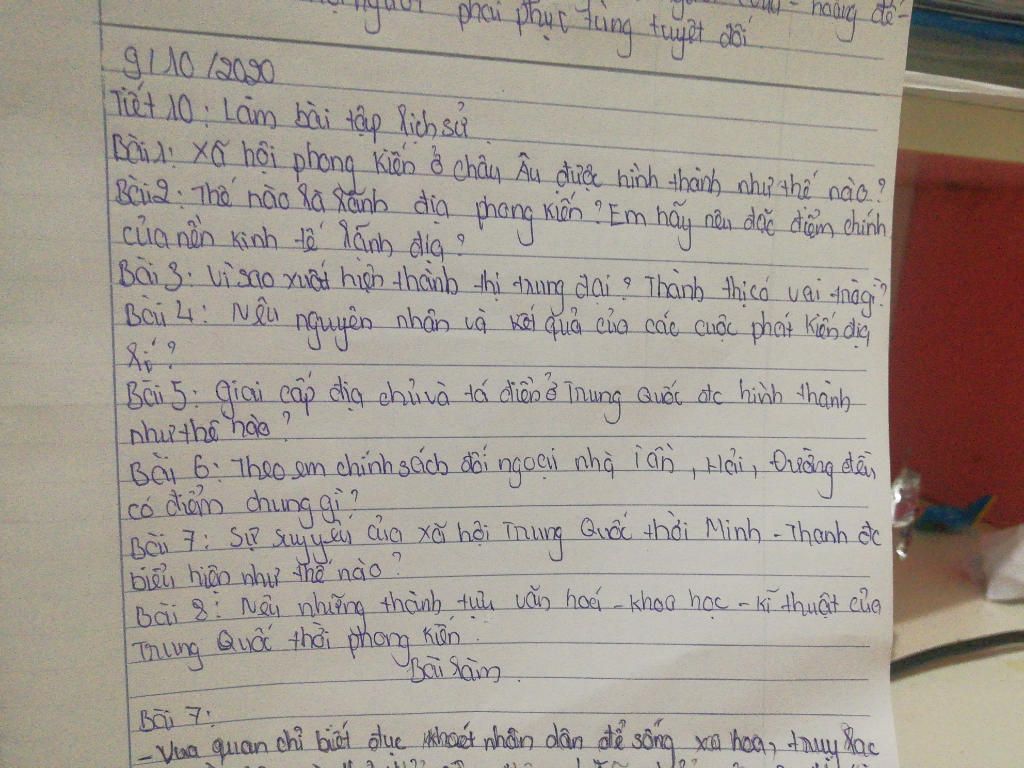 phải phục tùng tuyệt đối.
9/10/2020
Tiết 10: Làm bài tập Lịch sử
Bài 1: Xã hội phong kiến ở châu Âu được hình thành như thế nào?
Bài 2: Thế nào là lãnh địa phong kiến? Em hãy nêu đặc điểm chính
của nền kinh tế lãnh địa?
Bài 3: Vì sao xuất hiện thành thị trung đại? Thành thị có vai trò gì?
Bài 4: Nêu nguyên nhân và kết quả của các cuộc phát kiến địa
lí?
Bài 5: Giai cấp địa chủ và tá điền ở Trung Quốc đc hình thành
như thế nào?
Bài 6: Theo em chính sách đối ngoại nhà Tần, Hán, Đường đều
có điểm chung gì?
Bài 7: Sự suy yếu của xã hội Trung Quốc thời Minh - Thanh đc
biểu hiện như thế nào?
Bài 8: Nêu những thành tựu văn hoá - khoa học - kĩ thuật của
Trung Quốc thời phong kiến?
Bài làm.
Bài 7:
- Vua quan chỉ biết đục khoét nhân dân để sống xa hoa, truỵ lạc